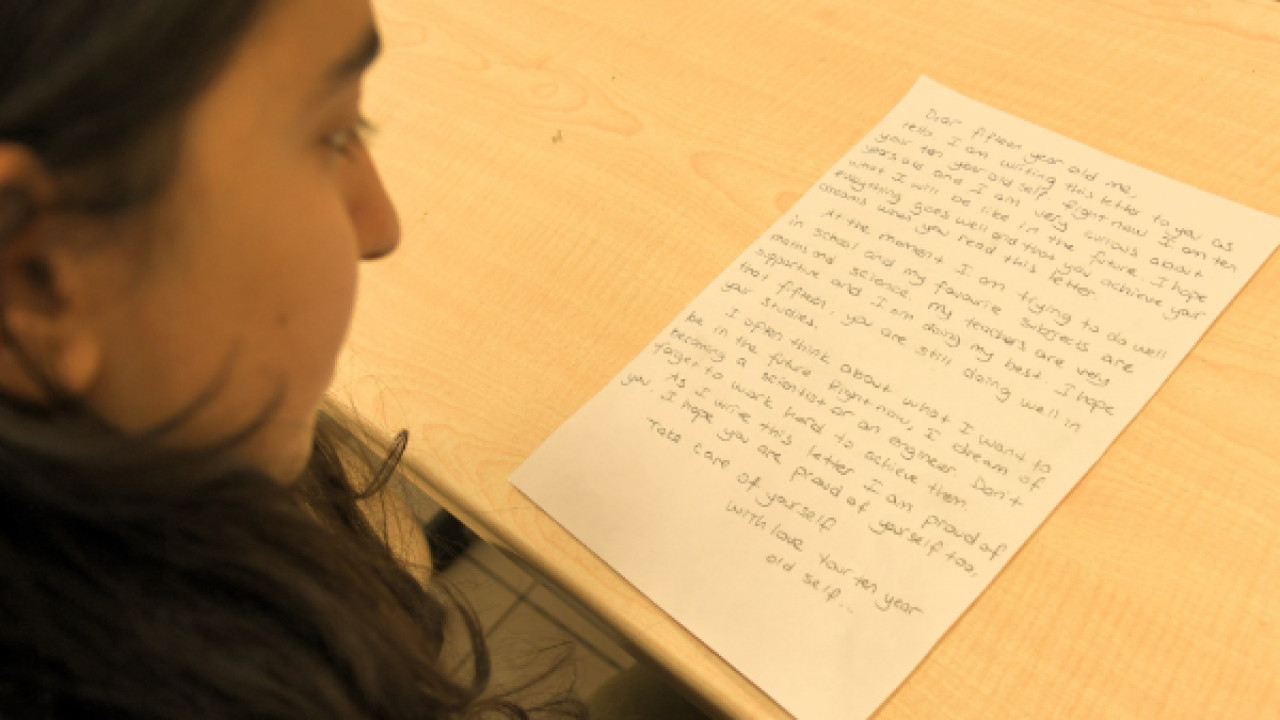 Dear fifteen year old me,
Hello I am writing this letter to you as
your ten year old self. Right now I am ten
years old and I am very curious about
what I will be like in the future. I hope
everything goes well and that you achieve your
dreams when you read this letter.
At the moment I am trying to do well
in school and my favourite subjects are
maths and science. My teachers are very
supportive and I am doing my best. I hope
that fifteen, you are still doing well in
your studies.
I open think about what I want to
be in the future. Right now, I dream of
becoming a scientist or an engineer. Don't
forget to work hard to achieve them.
As I write this letter I am proud of
you. I hope you are proud of yourself too,
Take care of yourself
With love your ten year
old self...